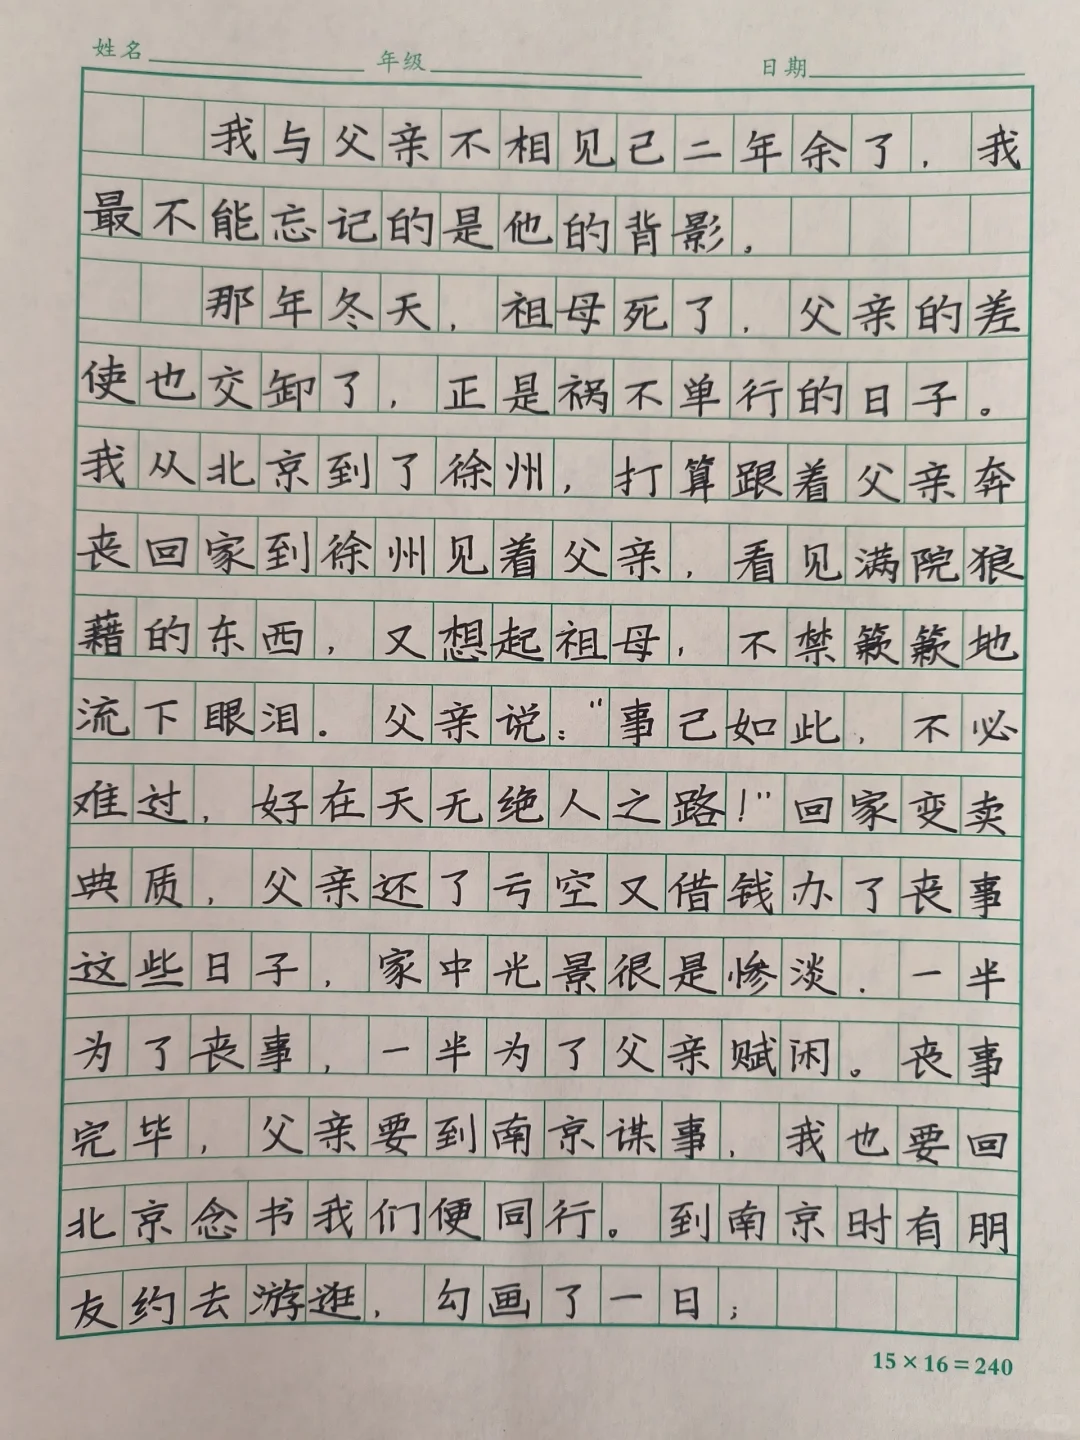 姓名 年级 日期
我与父亲不相见已二年余了，我
最不能忘记的是他的背影。
那年冬天，祖母死了，父亲的差
使也交卸了，正是祸不单行的日子。
我从北京到了徐州，打算跟着父亲奔
丧回家到徐州见着父亲，看见满院狼
藉的东西，又想起祖母，不禁簌簌地
流下眼泪。父亲说："事已如此，不必
难过，好在天无绝人之路！"回家变卖
典质，父亲还了亏空又借钱办了丧事
这些日子，家中光景很是惨淡．一半
为了丧事，一半为了父亲赋闲。丧事
完毕，父亲要到南京谋事，我也要回
北京念书我们便同行。到南京时有朋
友约去游逛，勾画了一日；
15×16=240